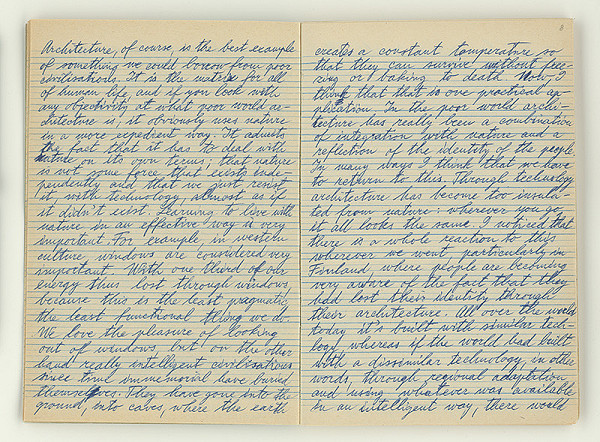 Architecture, of course, is the best example
of something we could borrow from poor
civilisations. It is the matrix for all
of human life, and if you look with
any objectivity at what poor world ar-
chitecture is, it obviously uses nature
in a more expedient way. It admits
the fact that it has to deal with
nature on its own terms; that nature
is not some force that exists inde-
pendently and that we just resist
it, with technology, almost as if
it didn't exist. Learning to live with
nature in an effective way is very
important. For example in western
culture windows are considered very
important. With one third of our
energy thus lost through windows,
because this is the least pragmatic,
the least functional thing we do.
We love the pleasure of looking
out of windows, but on the other
hand really intelligent civilisations
since time immemorial have buried
themselves. They have gone into the
ground, into caves, where the earth
8
creates a constant temperature so
that they can survive without free-
zing or baking to death. Now, I
think that that is one practical ap-
plication. In the poor world archi-
tecture has really been a combination
of integration with nature and a
reflection of the identity of the people.
In many ways I think that we have
to return to this. Through technology
architecture has become too insula-
ted from nature: wherever you go
it all looks the same. I noticed that
there is a whole reaction to this
wherever we went, particularly in
Finland, where people are becoming
very aware of the fact that they
had lost their identity through
their architecture. All over the world
today it's built with similar tech-
logy, whereas if the world had built
with a dissimilar technology, in other
words, through regional adaptation
and using whatever was available
in an intelligent way, there would